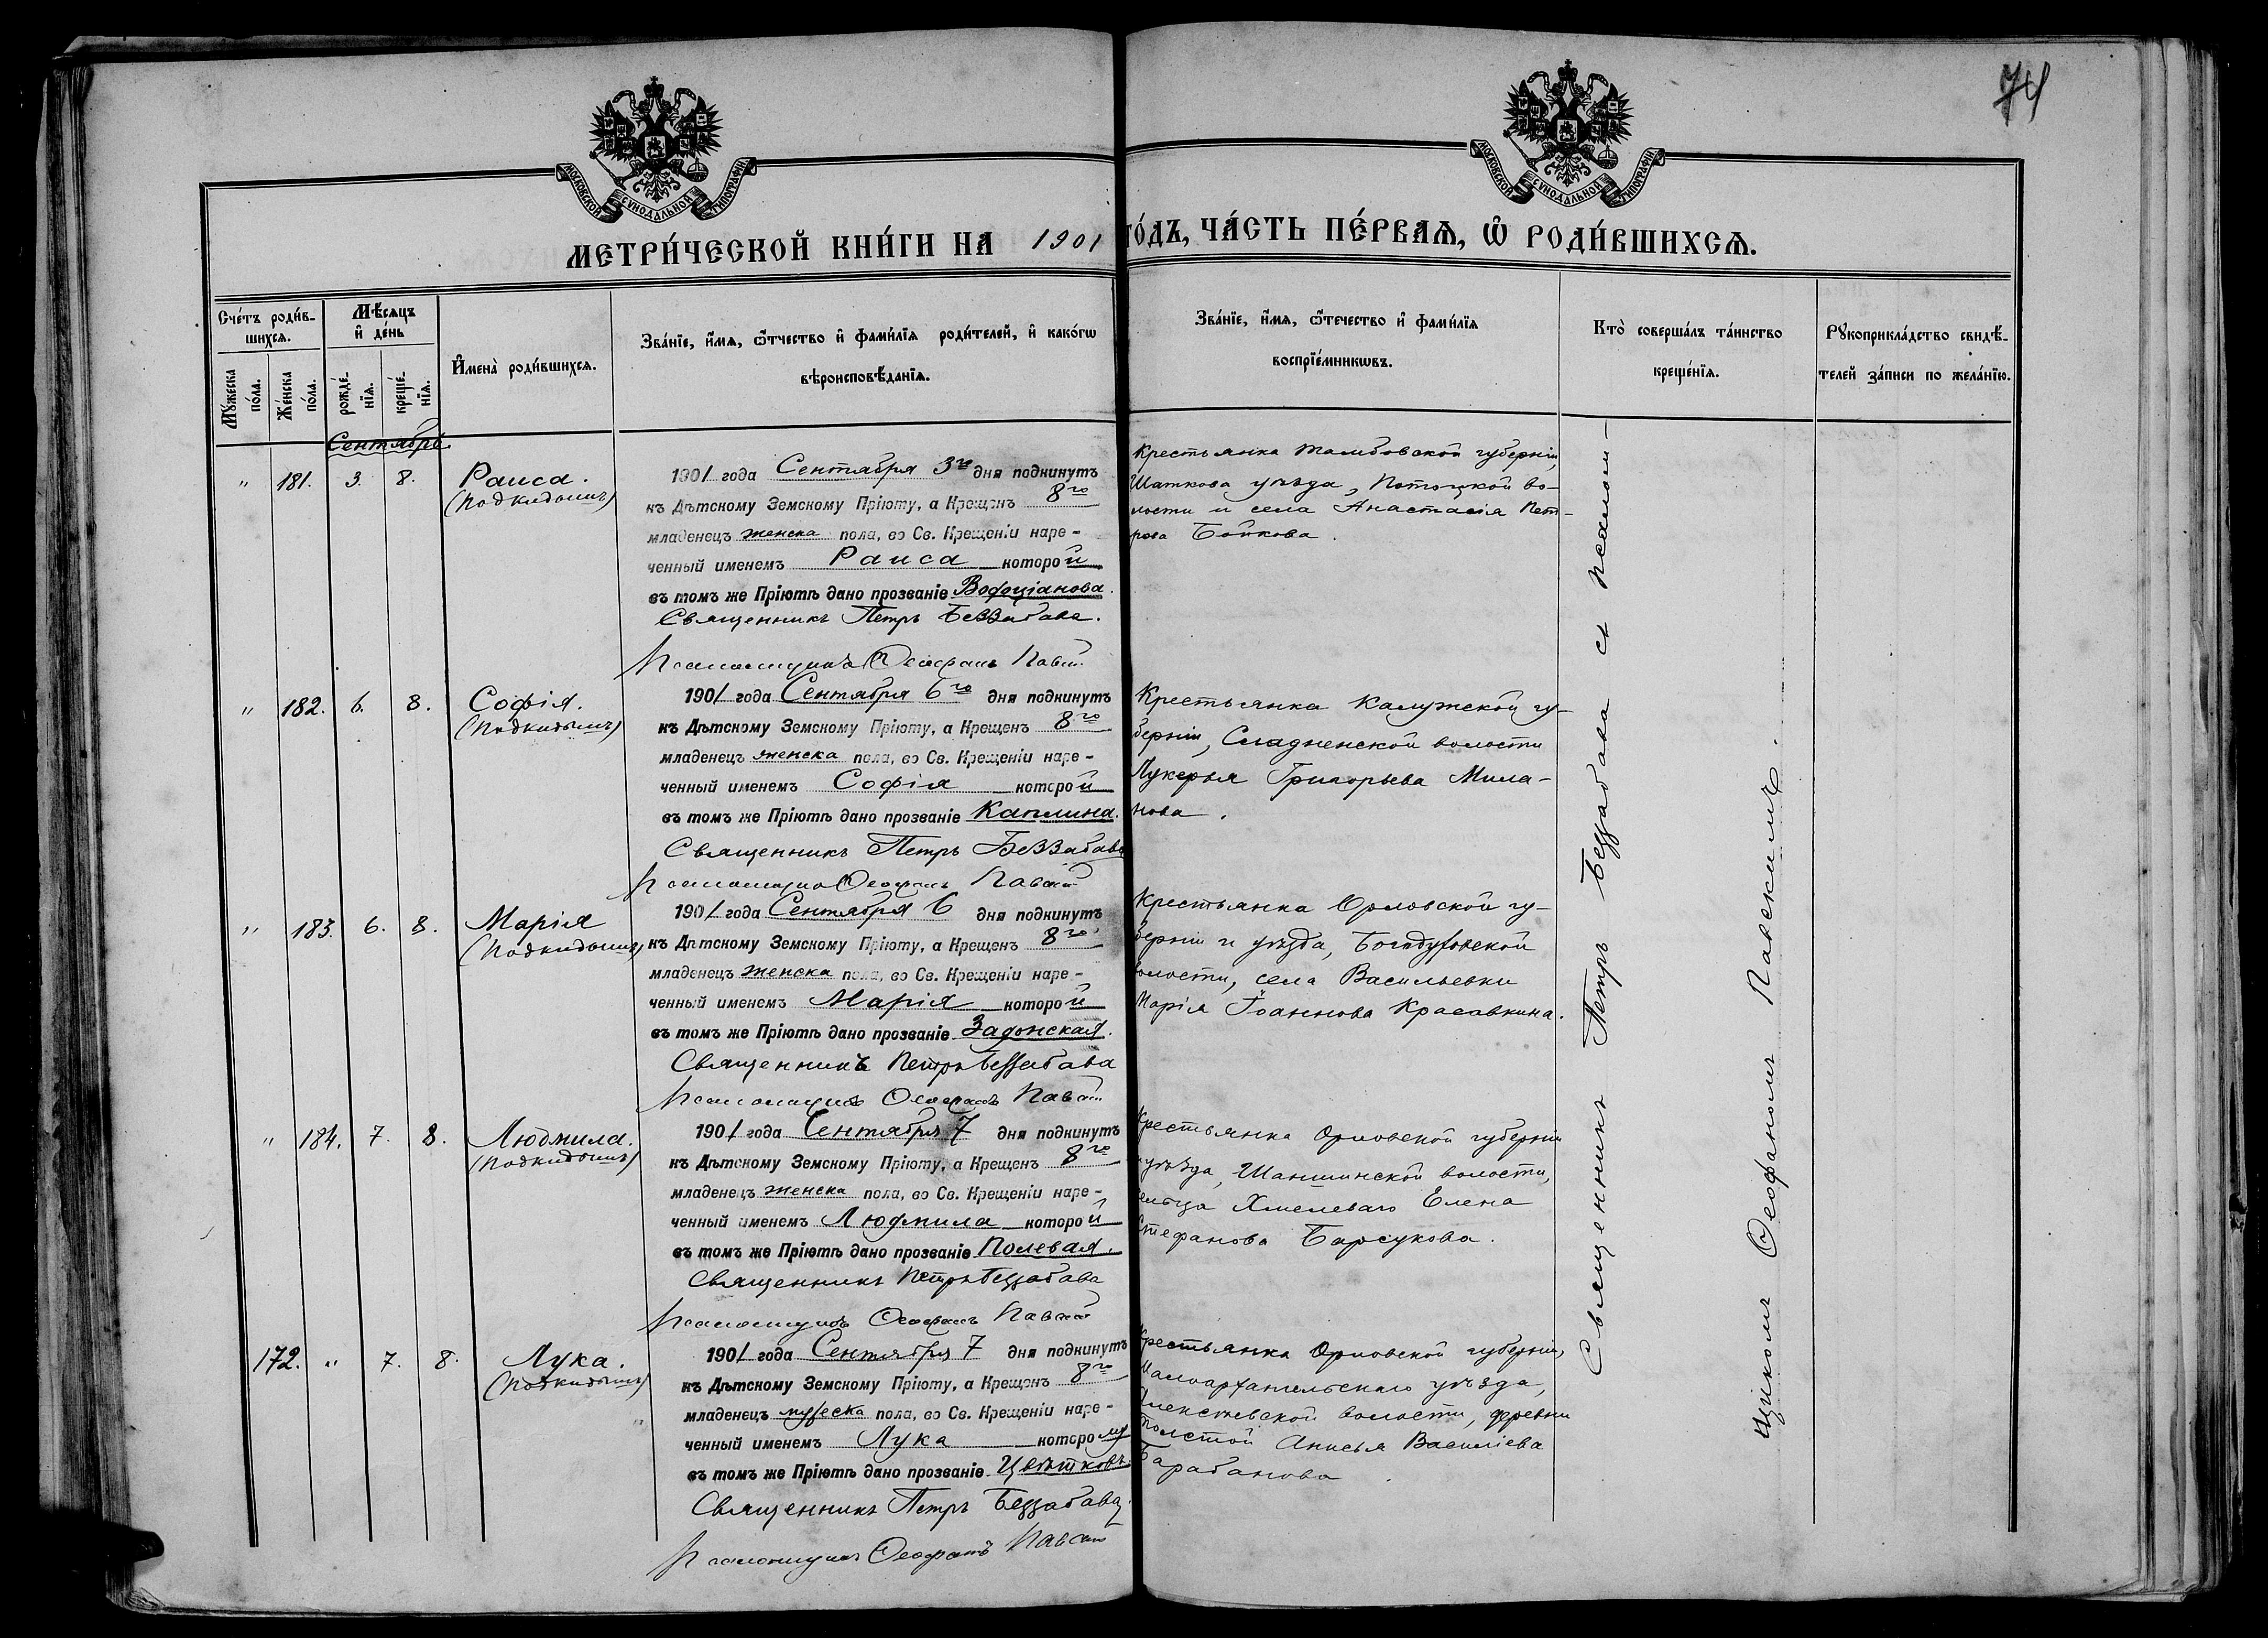 74
МОСКОВСКОЙ СУНОДАЛЬНОЙ ТИПОГРАФІИ
МОСКОВСКОЙ СУНОДАЛЬНОЙ ТИПОГРАФІИ
МЕТРИ́ЧЕСКОЙ КНИ́ГИ НА 1901 ГО́ДЪ, ЧА́СТЬ ПЕ́РВАѦ, Ѡ҆ РОДИ́ВШИХСѦ.
Сче́тъ роди́в-
шихсѧ.
Мѣ́сѧцъ
и҆ де́нь
Мꙋ́жеска по́ла.
Же́нска по́ла.
рожде́-
нїѧ.
креще́-
нїѧ.
И҆мена̀ роди́вшихсѧ.
Зва́нїе, и҆́мѧ, ѻ҆́тчество и҆ фами́лїѧ роди́телей, и҆ како́гѡ
вѣроисповѣ́данїѧ.
Зва́нїе, и҆́мѧ, ѻ҆́течество и҆ фами́лїѧ
воспрїе́мникѡвъ.
Кто̀ соверша́лъ та́инство
креще́нїѧ.
Рꙋкоприкла́дство свидѣ́-
телей за́писи по жела́нїю.
Сентябрь.
" 181. 3. 8. Раиса.
(подкидышъ)
1901 года Сентября 3го дня подкинутъ
къ Дѣтскому Земскому Пріюту, а Крещенъ 8го
младенецъ женска пола, во Св. Крещеніи наре-
ченный именемъ Раиса которой
въ томъ же Пріютѣ дано прозваніе
Священникъ Петръ Беззабава.
Псаломщикъ Ѳеофанъ
Крестьянка Тамбовской губерніи,
Шацкова уѣзда, во-
лости и села Анастасія Пет-
рова Бойкова.
" 182. 6. 8. Софія.
(подкидышъ)
1901 года Сентября 6го дня подкинутъ
къ Дѣтскому Земскому Пріюту, а Крещен 8го
младенецъ женска пола, во Св. Крещеніи наре-
ченный именемъ Софія которой
въ томъ же Пріютѣ дано прозваніе Каплина.
Священникъ Петръ Беззабава
Псаломщикъ Ѳеофанъ
Крестьянка Калужской гу-
берніи, волости
Лукерья Григорьева Мила-
нова.
" 183. 6. 8. Марія
(подкидышъ)
1901 года Сентября 6 дня подкинутъ
къ Дѣтскому Земскому Пріюту, а Крещен 8го
младенецъ женска пола, во Св. Крещеніи наре-
ченный именемъ Марія которой
въ томъ же Пріютѣ дано прозваніе Задонская.
Священникъ Петръ Беззабава
Псаломщикъ Ѳеофанъ
Крестьянка Орловской гу-
берніи и уѣзда, Богодуховской
волости, села Васильевки
Марія Іоаннова Красавкина.
" 184. 7. 8. Людмила.
(подкидышъ)
1901 года Сентября 7 дня подкинутъ
къ Дѣтскому Земскому Пріюту, а Крещен 8го
младенецъ женска пола, во Св. Крещеніи наре-
ченный именемъ Людмила которой
въ томъ же Пріютѣ дано прозваніе Полевая.
Священникъ Петръ Беззабава
Псаломщикъ Ѳеофанъ
Крестьянка Орловской губерніи
уѣзда, волости,
сельца Хмелеваго Елена
Стефанова Барсукова.
172. " 7. 8. Лука.
(подкидышъ)
1901 года Сентября 7 дня подкинутъ
къ Дѣтскому Земскому Пріюту, а Крещен 8го
младенецъ мужеска пола, во Св. Крещеніи наре-
ченный именемъ Лука которому
въ томъ же Пріютѣ дано прозваніе Цвѣтковъ
Священникъ Петръ Беззабава.
Псаломщикъ Ѳеофанъ
Крестьянка Орловской губерніи,
Малоархангельскаго уѣзда,
Алексѣевской волости, деревни
Толстой Анисья Василіева
Барабанова.
Священникъ Петръ Беззабава съ псалом-
щикомъ Ѳеофаномъ Павскимъ.